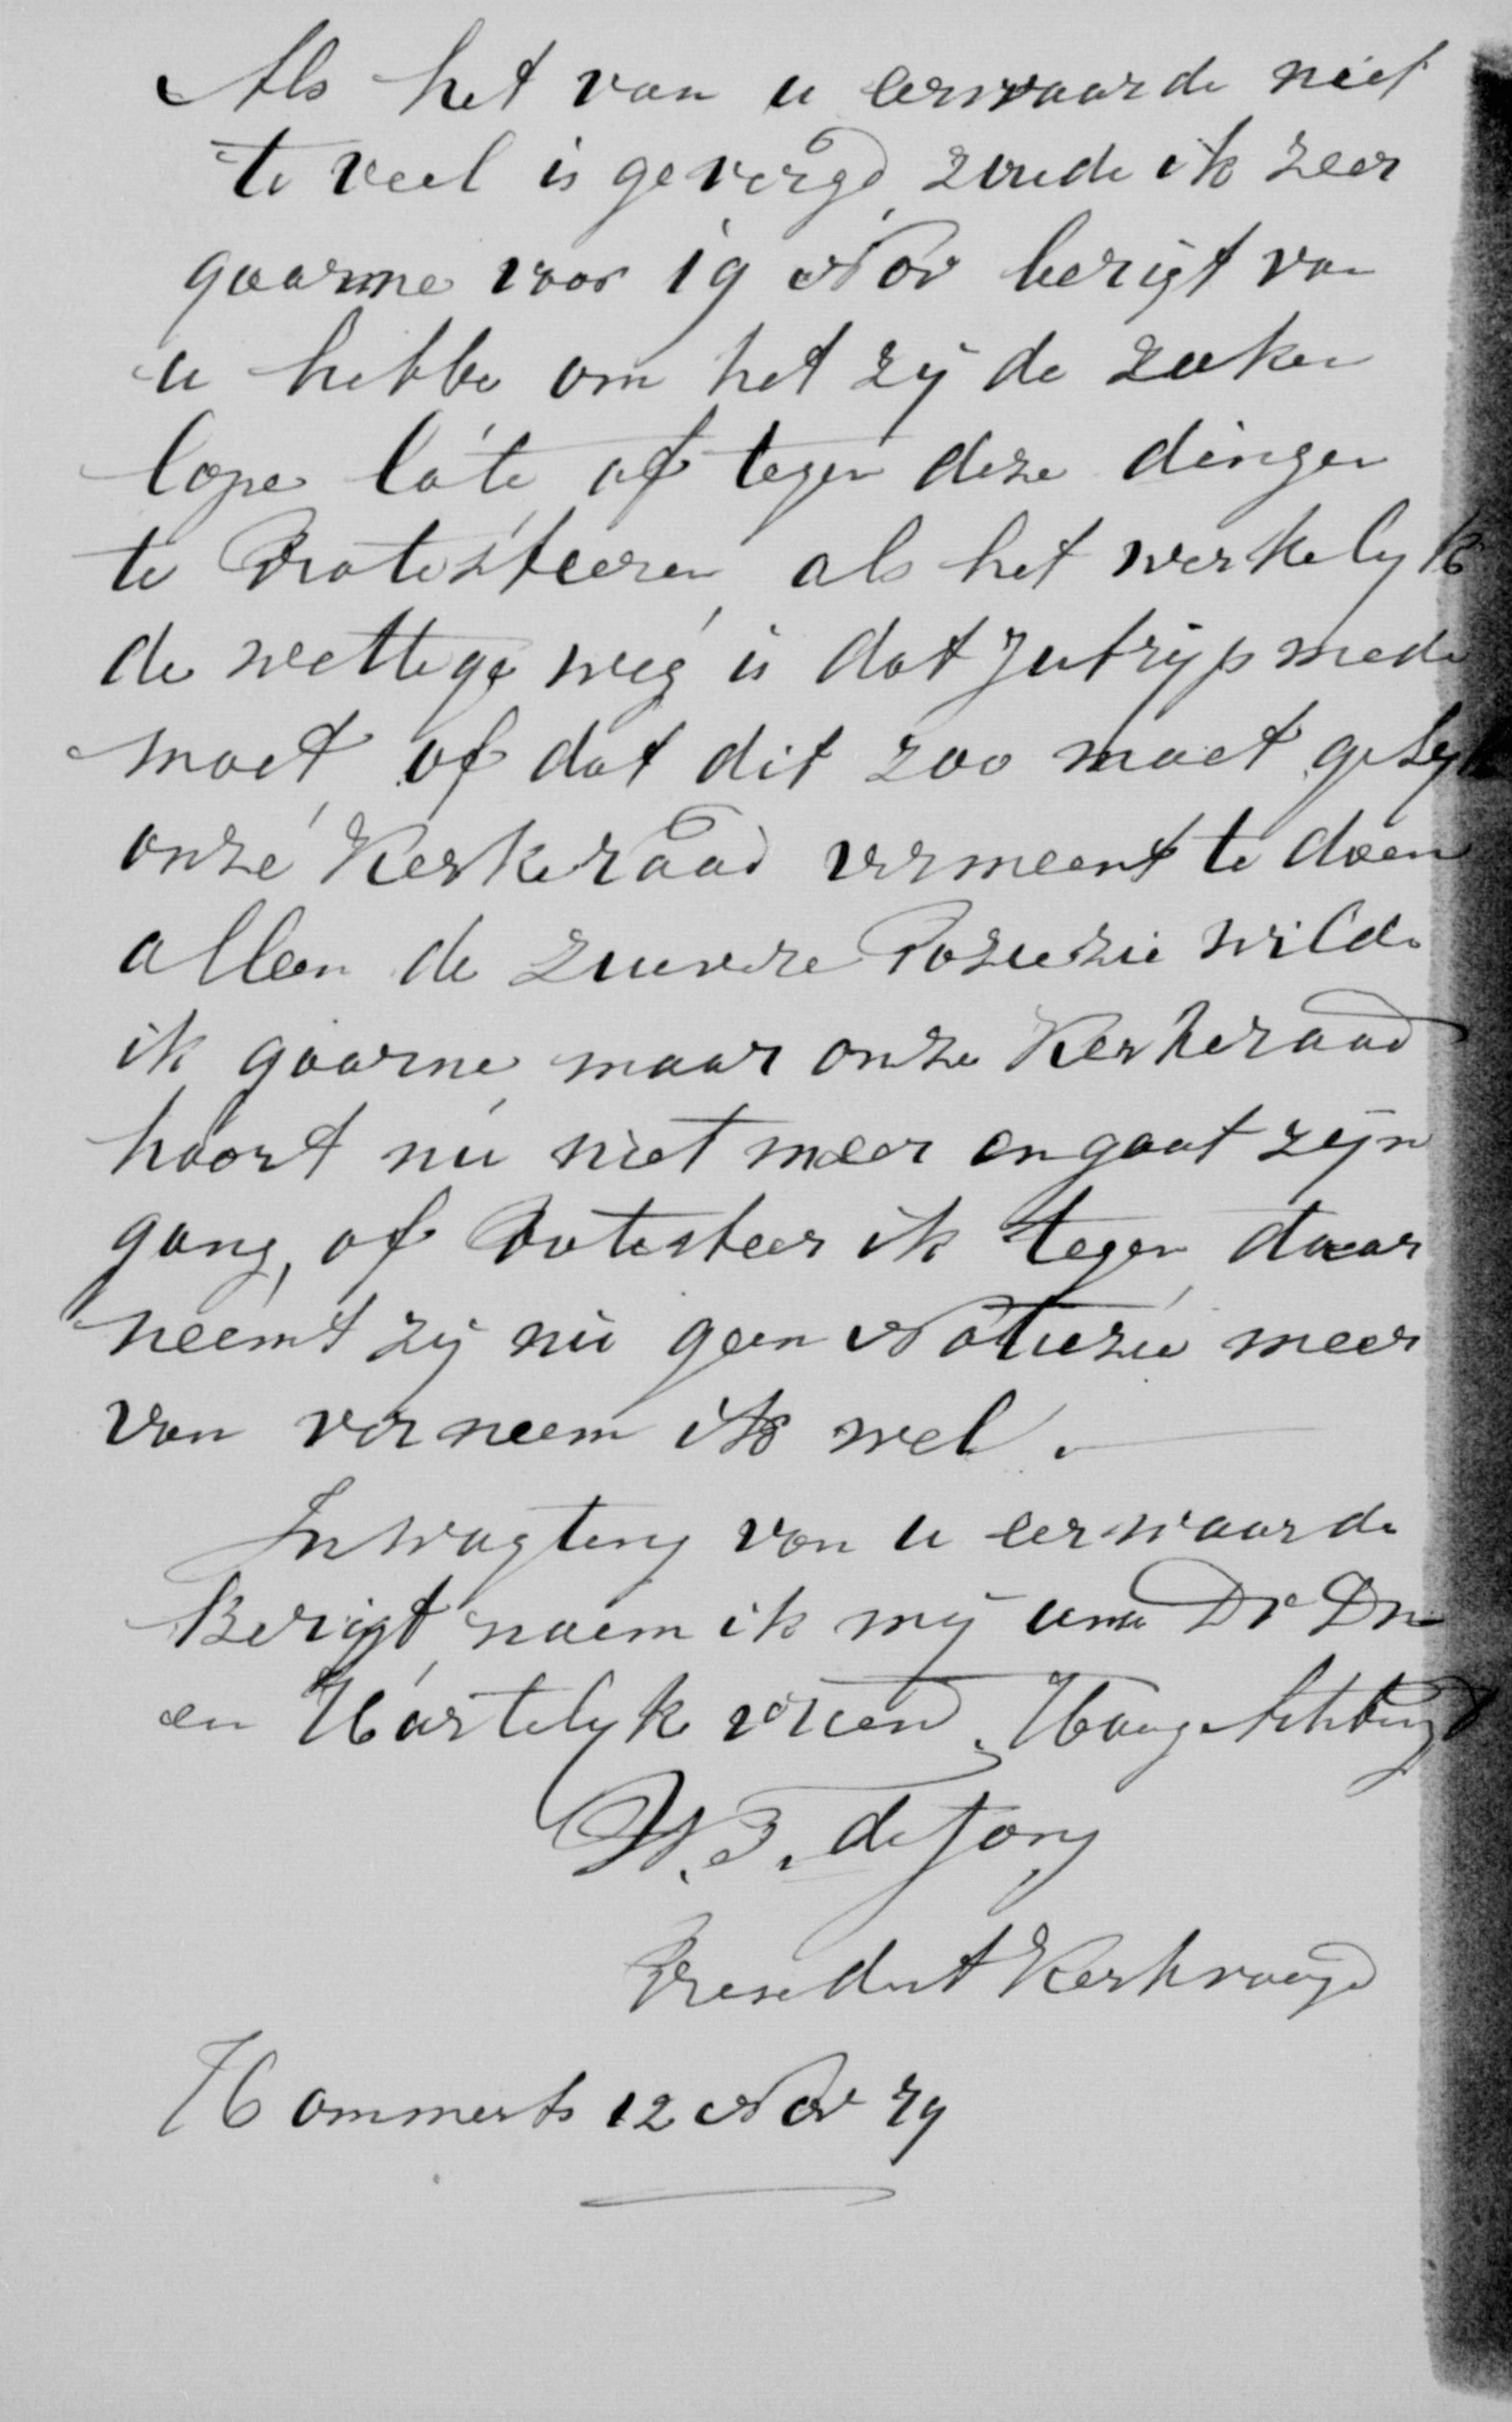 Als het van u eerwaarde niet
te veel is gevergd, zoude ik zeer
gaarne voor 19 Nov berigt van
u hebbe om het zij de zaken
lope late, of tegen deze dingen
te Protesteeren, als het werkelijk
de wettege weg is dat Jutrijp mede
moet, of dat dit zoo moet gelijk
onze Kerkeraad vermeent te doen
alleen de zuevere Poziezie wilde
ik gaarne, maar onze Kerkeraad
hoort nu niet meer en gaat zijn
gang, of Protesteer ik tegen, daar
neemt zij nu geen Notiezie meer
van verneem ik wel.
Inwagting van u eerwaarde
Berigt, noem ik mij uwe Dr Dn
en Hartelijk vriend, Hoog Achtend
W. S. de Jong
President Kerkvoogd
Hommerts 12 Nov 79